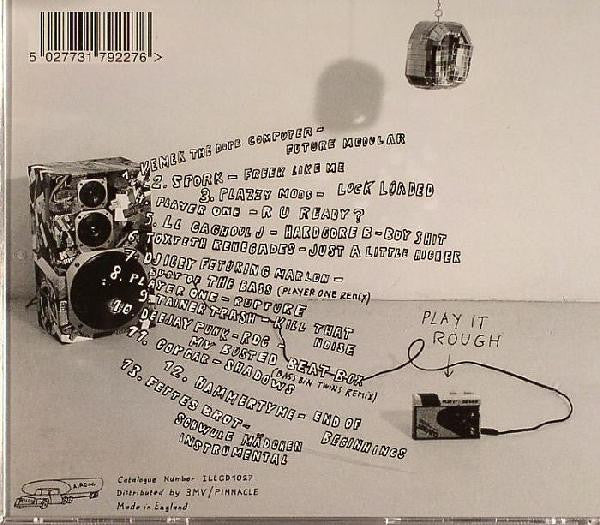 5 027731 792276 >
1. KEMEK THE DOPE COMPUTER -
FUTURE MODULAR
2. SFORK - FREEK LIKE ME
3. PLAZZY MODS - LOCK LOADED
4. PLAYER ONE - R U READY?
5. LA CAGNOUL J - HARDCORE B-BOY SHIT
6. TOXTETH RENEGADES - JUST A LITTLE HIGHER
7. DJ ICEY FETURING MARLON -
BEAT OF THE BASS (PLAYER ONE REMIX)
8. PLAYER ONE - RUPTURE
9. TAINER TRASH - KILL THAT
NOISE
10. DEEJAY PUNK-ROC -
MY BUSTED BEAT BOX
(BASS BIN TWINS REMIX)
11. COUGAR - SHADOWS
12. HAMMERTYME - END OF
BEGINNINGS
13. FETTES BROT -
SCHWULE MÄDCHEN
INSTRUMENTAL
PLAY IT
ROUGH
Catalogue Number ILLCD1027
Distributed by 3MV/PINNACLE
Made in England